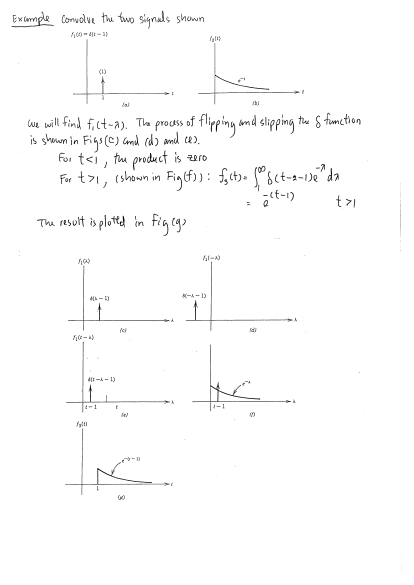 Example Convolve the two signals shown
f₁(t) = δ(t − 1)
f₂(t)
(1)
e⁻ᵗ
1
t
t
(a)
(b)
we will find f₁(t-λ). The process of flipping and slipping the δ function
is shown in Figs (c) and (d) and (e).
For t<1, the product is zero
For t>1, (shown in Fig(f)): f₃(t) = ∫₁^∞ δ(t-λ-1)e^-λ dλ
= e^-(t-1) t>1
The result is plotted in Fig (g)
f₁(λ)
f₁(−λ)
δ(λ − 1)
δ(−λ − 1)
λ
λ
(c)
(d)
f₁(t − λ)
δ(t − λ − 1)
e^−λ
λ
λ
t − 1
t
t − 1
(e)
(f)
f₃(t)
e^−(t − 1)
1
t
(g)